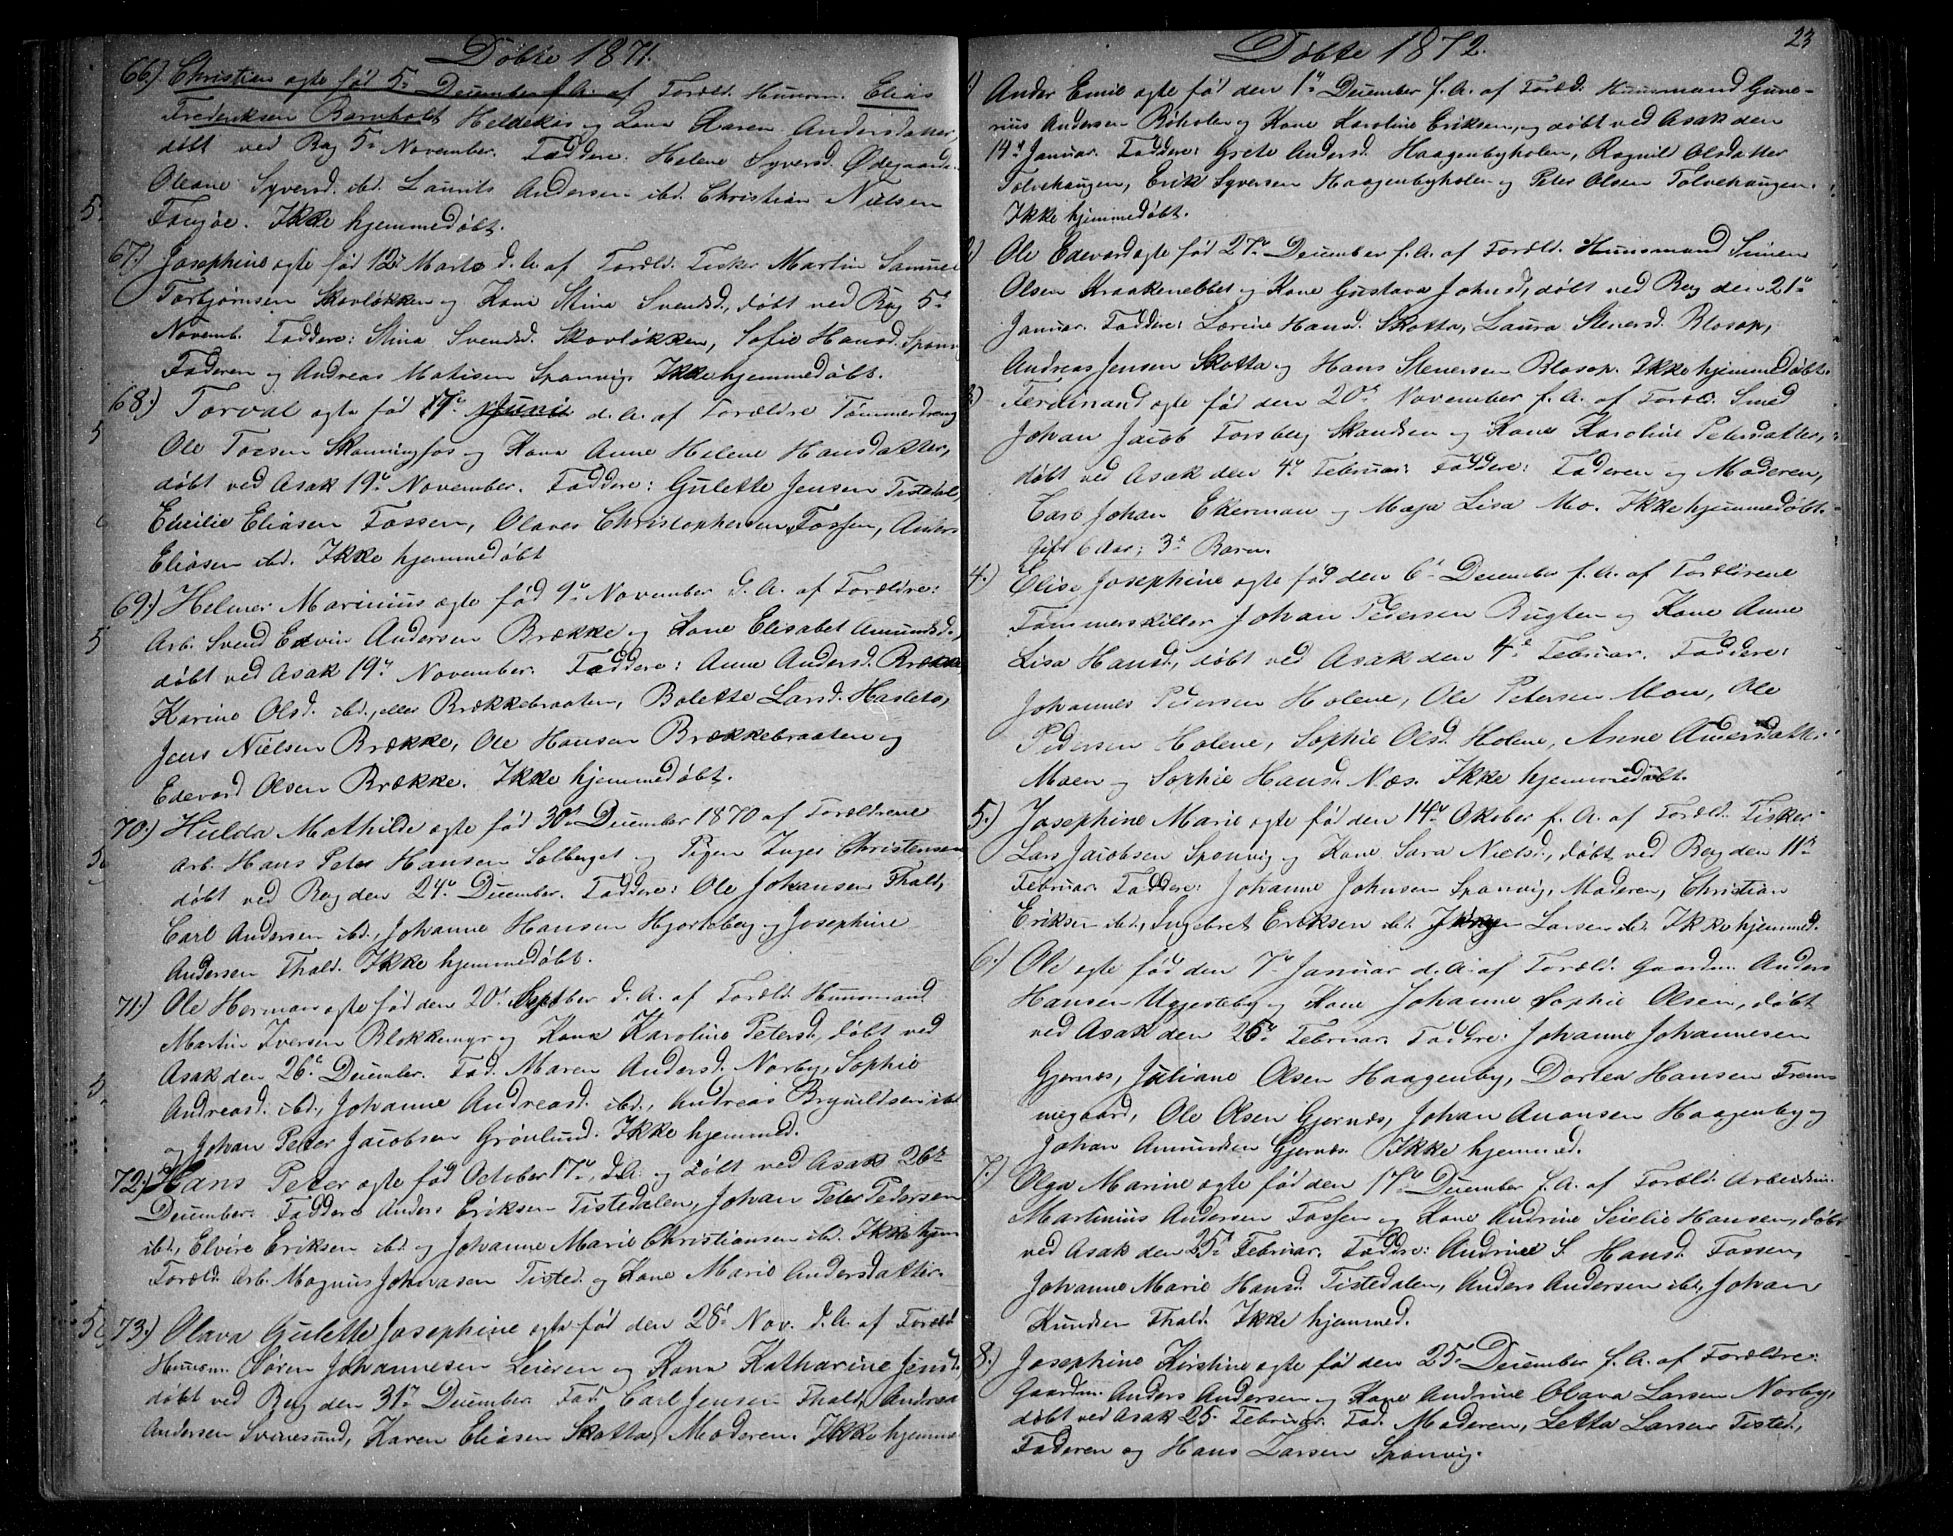 Døbte 1871.
66.) Christian ægte før 5te December f. A. af Foræld. Huusm. Elias
Frederiksen Barnholt Heldekis og Kone Karen Andersdatter,
døbt ved Berg 5te November. Faddere: Helene Syversd. Ødegaard.
Oleane Syversd. ibd. Laurits Andersen ibd. Christian Nielsen
Ikke hjemmedøbt.
67.) Josephine ægte fød 12te Marts d. A. af Foræld. Fisker Martin Samuel
Torbjørnsen Skovløkken og Kone Stina Svendsd., døbt ved Berg 5te
Novemb. Faddere: Stina Svendsd. Skovløkken, Sofie Hansd. Sponvig
Faderen og Andreas Matisen Sponvig. Ikke hjemmedøbt.
68.) Torval ægte fød 17de Juni d. A. af Forældre Tømmerdreng
Ole Torsen Skonningfos og Kone Anne Helene Hansdatter,
døbt ved Asak 19de November. Faddere: Gulette Jensen Tistedal,
Elieilie Eliasen Fossen, Olaves Christophersen Fossen, Anders
Eliasen ibd. Ikke hjemmedøbt
69.) Helmer Marinius ægte fød 9de November d. A. af Forældre:
Arb. Svend Edvin Andersen Brække og Kone Elisabet Amundsd.,
døbt ved Asak 19de November. Faddere: Anne Andersd. Brække,
Karine Olsd. ibd., eller Brækkebraaten, Bolette Larsd. Hasleto,
Jens Nielsen Brække, Ole Hansen Brækkebraaten og
Edevard Olsen Brække. Ikke hjemmedøbt.
70.) Hulda Mathilde ægte fød 30te December 1870 af Forældrene
Arb. Hans Peter Hansen Solberget og Pigen Inger Christensen
døbt ved Berg den 24de December. Faddere: Ole Johansen Thald,
Carl Andersen ibd., Johanne Hansen Hjorteberg og Josephine
Andersen Thald. Ikke hjemmedøbt.
71.) Ole Herman ægte fød den 20de Septber d. A. af Foræld. Huusmand
Martin Iversen Blokkemyr og Kone Karoline Petersd., døbt ved
Asak den 26de December. Fad. Maren Andersd. Norby, Sophie
Andreasd. ibd., Johanne Andreasd. ibd., Andreas Brynildsen ibd
og Johan Peter Jacobsen Grønlund. Ikke hjemmed.
72.) Hans Peter ægte fød October 17de, d. A. og døbt ved Asak 26de
December. Faddere Anders Eriksen Tistedalen, Johan Peter Pedersen
ibd., Elvire Eriksen ibd. og Johanne Marie Christiansen ibd. Ikke hjem
Foræld. Arb. Magnus Johnasen Tisted. og Kone Marie Andersdatter.
73.) Olava Gulette Josephine ægte fød den 28de Nov. d. A. af Foræld.
Huusm. Søren Johannesen Leieren og Kone Katharine Jensd.,
døbt ved Berg den 31te December. Fad. Carl Jensen Thald, Anders
Andersen Svinesund, Karen Eliasen Skotta, Moderen. Ikke hjemme
23
Døbte 1872.
1) Ander Emil ægte fød den 1ste December f. A. af Foræld. Huusmand Gune-
rius Andersen Røholen og Kone Karoline Eriksen, og døbt ved Asak den
14de Januar. Faddere: Grete Andersd. Haagenbyholen, Ragnil Olsdatter
Tolvehaugen, Erik Syversen Haagenbyholen og Peter Olsen Tolvehaugen.
Ikke hjemmedøbt.
2) Ole Edevard ægte fød 27de December f. A. af Foræld. Huusmand Simen
Olsen Kraakenebbet og Kone Gustava Johnsd., døbt ved Berg den 21de
Januar. Faddere: Lovine Hansd. Skotta, Laura Stenersd. Blosop,
Andreas Jensen Skotta og Hans Stenersen Blosop. Ikke hjemmedøbt.
3) Ferdinand ægte fød den 20de November f. A. af Foræld. Smed
Johan Jacob Forsberg Skandsen og Kone Karoline Petersdatter,
døbt ved Asak den 4de Februar: Faddere: Faderen og Moderen,
Carl Johan Ekerman og Maja Lisa Mo. Ikke hjemmedøbt.
Gift 6 Aar; 3de Barn.
4.) Elise Josephine ægte fød den 6te December f. A. af Forældrene
Tømmerskiller Johan Pedersen Rugten og Kone Anne
Lisa Hansd., døbt ved Asak den 4de Februar. Faddere:
Johannes Pedersen Holene, Ole Petersen Moen, Ole
Pedersen Holene, Sophie Olsd. Holene, Anne Andersdatter
Moen og Sophie Hansd. Næs. Ikke hjemmedøbt.
5.) Josephine Marie ægte fød den 14de Oktober f. A. af Foræld. Fisker
Lars Jacobsen Sponvig og Kone Sara Nielsd., døbt ved Berg den 11te
Februar. Faddere: Johanne Johnsen Sponvig, Moderen, Christian
Eriksen ibd., Ingebret Eriksen ibd. Jørgen Larsen ibd. Ikke hjemmed.
6.) Ole ægte fød den 7de Januar d. A. af Foræld. Gaardm. Anders
Hansen Uggesteby og Kone Johanne Sophie Olsen, døbt
ved Asak den 25de Februar. Faddre: Johanne Johannesen
Gjernæs, Juliane Olsen Haagenby, Dortea Hansen Frem-
megaard, Ole Olsen Gjernæs, Johan Anonsen Haagenby og
Johan Amundsen Gjernæs. Ikke hjemmed.
7.) Olga Marine ægte fød den 17de December f. A. af Foræld. Arbeidsm.
Martinius Andersen Fossen og Kone Andrine Seielie Hansen, døbt
ved Asak den 25de Februar. Faddre: Andrine S. Hansd. Fossen,
Johanne Marie Hansd. Tistedalen, Anders Andersen ibd., Johan
Knudsen Thald. Ikke hjemmed.
8.) Josephine Kirstine ægte fød den 25de December f. A. af Forældre:
Gaardm. Anders Andersen og Kone Andrine Olava Larsen Norby,
døbt ved Asak 25. Februar. Fad. Moderen, Letta Larsen Tisted.,
Faderen og Hans Larsen Sponvig.